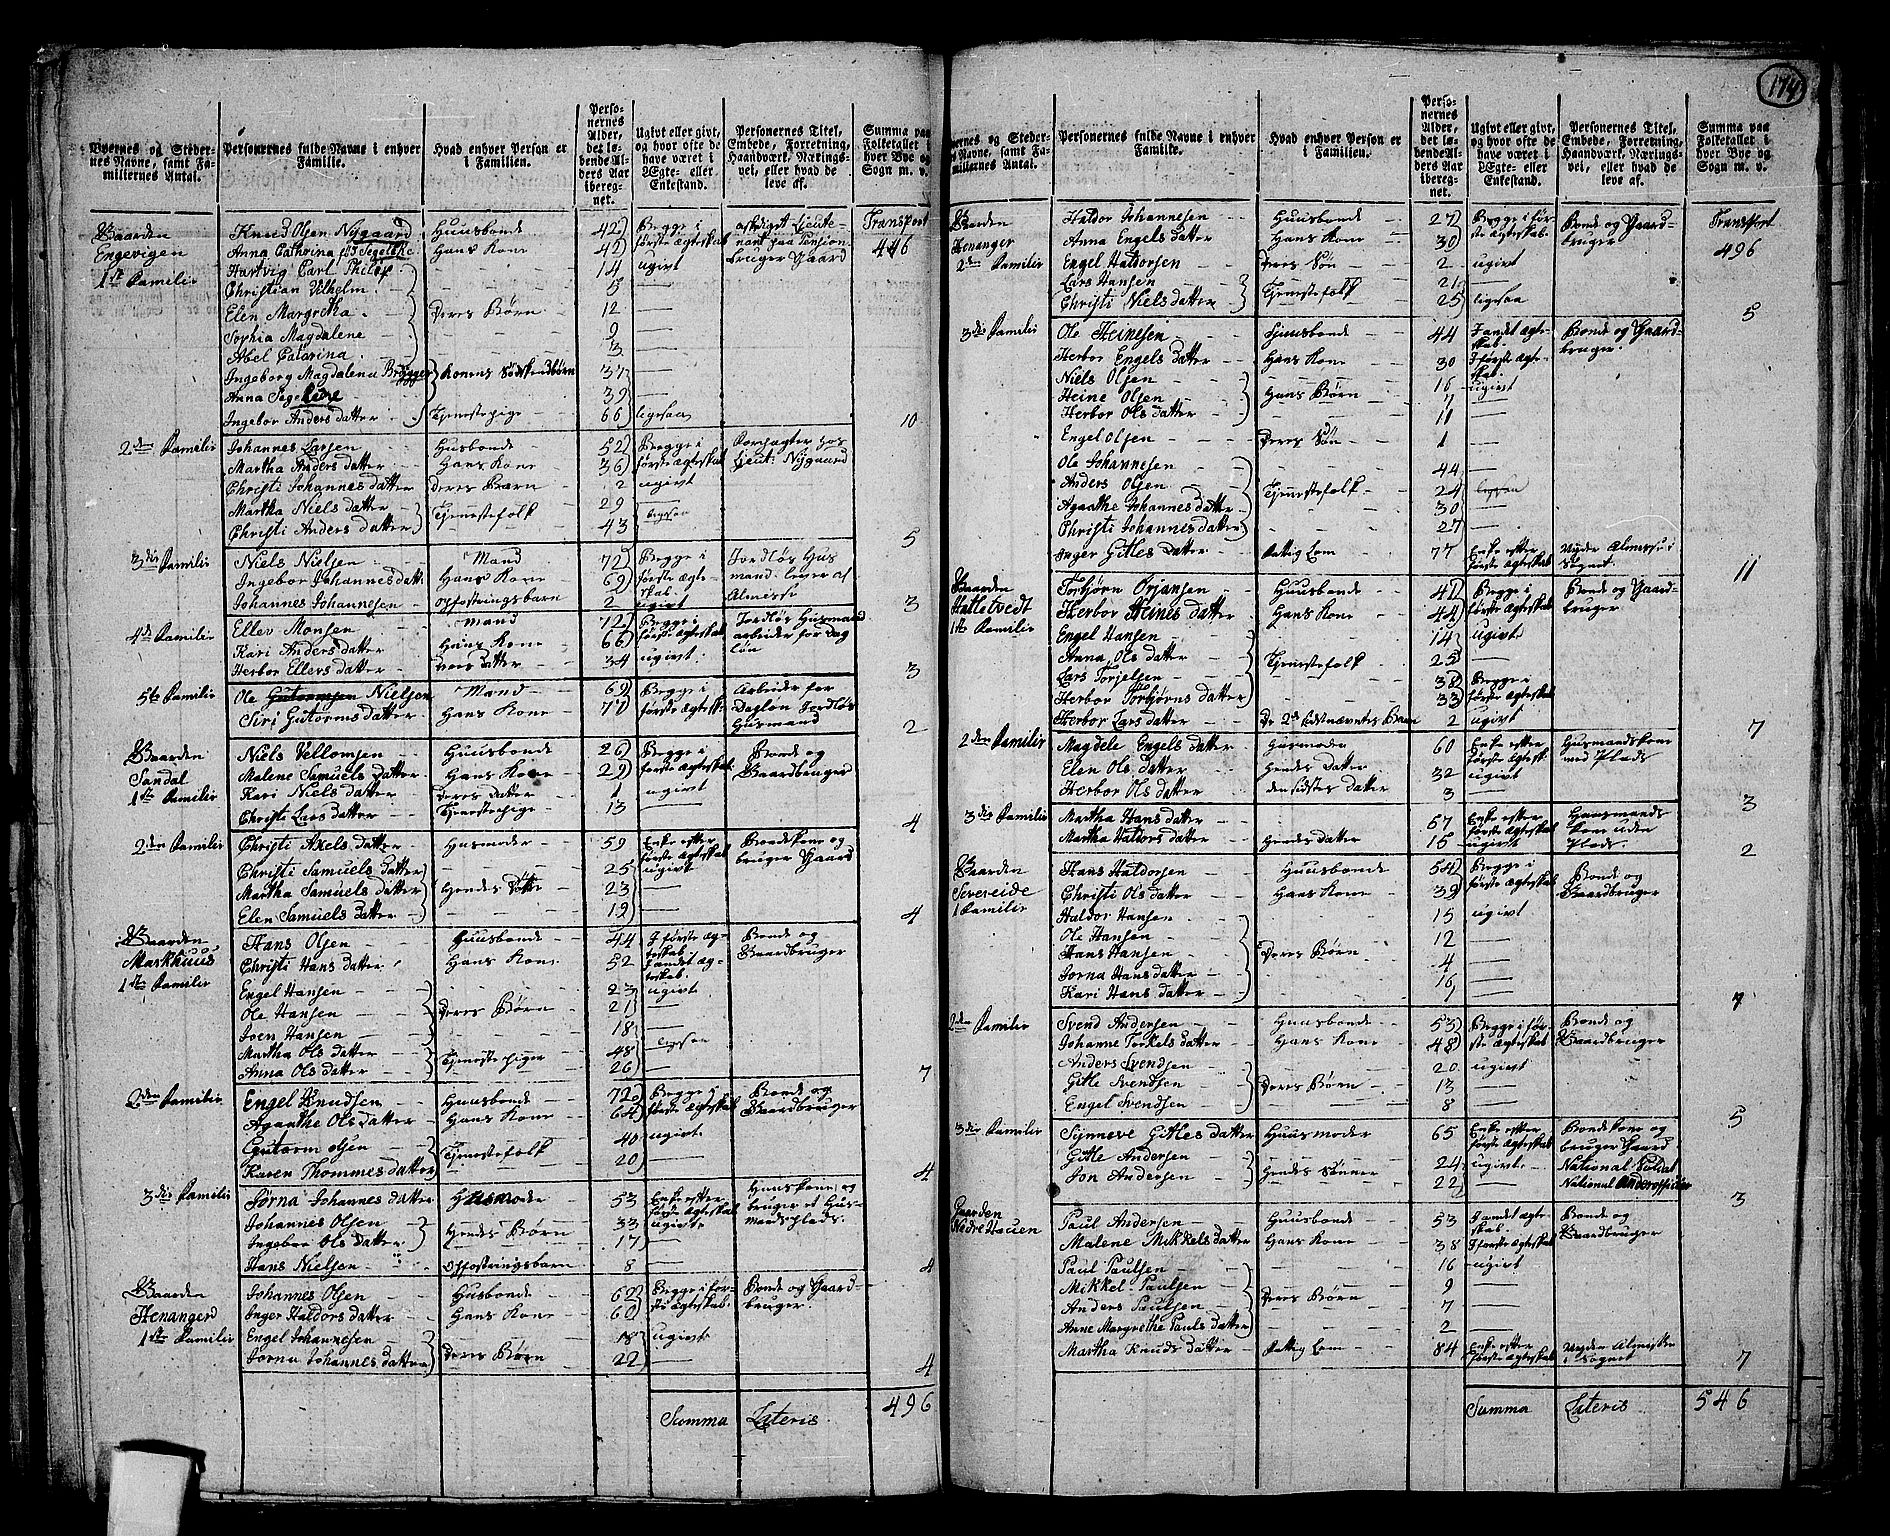 174
Byernes og Stedernes Navne, samt Familiernes Antal.
Personernes fulde Navne i enhver Familie.
Hvad enhver Person er i Familien.
Personernes Alder, det løbende Alders Aar iberegnet.
Ugivt eller givt, og hvor ofte de have været i Ægte- eller Enkestand.
Personernes Titel, Embede, Forretning, Haandværk, Næringsvei, eller hvad de leve af.
Summa paa Folketallet i hver Bye og Sogn m. v.
Gaarden Engevigen 1ste Familie
Transport 446
Knud Olsen Nygaard Huusbonde 42 Begge i
Anna Cathrina Hans Kone 42 første Ægteskab
Hartvig Carl Philip 14 ugivt
Christian Vilhelm 5
Elen Margretha Deres Børn 12
Sophia Magdalene 9
Abel Catarina 3
Ingeborg Magdalena Brygger Konens Södskendbörn 37
Anna 39
Ingebor Anders datter Tjenestepige 66 ligesaa 10
2den Familie
Johannes Larsen Husbonde 52 Begge i
Martha Anders datter Hans Kone 36 første Ægteskab Lieut. Nygaard
Christi Johannes datter Deres Barn 2 ugivt
Martha Niels datter Tjenestefolk 29 ligesaa
Christi Anders datter 43 5
3die Familie
Niels Nielsen Mand 72 Begge i Jordløs Hus
Ingebor Johannes datt: Hans Kone 69 første Ægte- mand lever af
Johannes Johannesen Opfostringsbarn 2 skab. ugivt Almisse 3
4de Familie
Eller Monsen Mand 72 Begge i Jordløs Husmand
Kari Anders datter Hans Kone 66 første Ægteskab arbeider for Dag
Herbor Ellers datter Deres datter 34 ugivt løn 3
5te Familie
Ole Gutormsen Nielsen Mand 69 Begge i Arbeider for
Siri Gutorms datter Hans Kone 70 første Ægtesk: Dagløn Jordløs Husmand 2
Gaarden Sandal 1ste Familie
Niels Vellomsen Huusbonde 26 Begge i Bonde og
Malene Samuels Datter Hans Kone 29 første Ægteskab Gaardbruger
Kari Niels datter Deres datter 1 ugivt
Christi Lars datter Tjenestepige 13 4
2den Familie
Christi Axels datter Husmoder 59 Enke efter første Ægteskab Bondekone og bruger Gaard
Christi Samuels Datter 25 ugivt
Martha Samuels datter Hendes Døttre 23
Elen Samuels datter 19 4
Gaarden Markhuus 1ste Familie
Hans Olsen Huusbonde 44 I første Ægteskab Bonde og
Christi Hans datter Hans Kone 52 I andet Ægteskab. Gaardbruger
Engel Hansen 23 ugivt
Ole Hansen Deres Børn 21
Joen Hansen 18
Martha Ols datter Tjenestepiger 48 ligesaa
Anna Ols datter 26 7
2den Familie
Engel Knudsen Huusbonde 72 Begge i Bonde og
Agaathe Ols Datter Hans Kone 64 første Ægteskab Gaardbruger
Gutorm Olsen Tjenestefolk 40 ugivt
Karen Thommes datter 20 4
3die Familie
Jorna Johannes datter Husmoder 53 Enke efter første Ægteskab Huuskone og bruger et Husmandsplads.
Johannes Olsen Hendes Børn 33 ugivt
Ingebor Ols datter 17
Hans Nielsen Opfostringsbarn 8 4
Gaarden Henangerd 1ste Familie
Johannes Olsen Husbonde 62 Begge i før- Bonde og Gaard-
Inger Haldors datter Hans Kone 60 ste Ægteskab. bruger.
Engel Johannesen Deres Børn 18 ugivt
Jorna Johannes datter 22 4
Summa Lateris 496
Byernes og Stedernes Navne, samt Familiernes Antal.
Personernes fulde Navne i enhver Familie.
Hvad enhver Person er i Familien.
Personernes Alder, det løbende Alders Aar iberegnet.
Ugivt eller givt, og hvor ofte de have været i Ægte- eller Enkestand.
Personernes Titel, Embede, Forretning, Haandværk, Næringsvei, eller hvad de leve af.
Summa paa Folketallet i hver Bye og Sogn m. v.
Gaarden Henanger 2den Familie
Transport 496
Haldor Johannesen Huusbonde 27 Begge i før- Bonde og Gaard-
Anna Engels datter Hans Kone 30 ste Ægteskab. bruger
Engel Haldorsen Deres Søn 2 ugivt
Lars Hansen Tjenestefolk 21
Christi Niels datter 25 ligesaa 5
3die Familie
Ole Heinesen Huusbonde 44 I andet Ægteskab. Bonde og Gaardbruger.
Herbor Engels datter Hans Kone 30 I første Ægteskab.
Niels Olsen 16 ugivt
Heine Olsen Hans Børn 7
Herbor Ols datter 11
Engel Olsen Deres Søn 1
Ole Johannesen 44
Anders Olsen Tjenestefolk 24 ligesaa
Agaathe Johannes datter 30
Christi Johannes datter 27
Inger Gitles datter Fattig Lem 77 Enke efter første Ægteskab Nyder Almisse i Sognet. 11
Gaarden Halletvedt 1ste Familie
Torbjørn Orjansen Huusbonde 41 Begge i Bonde og Gaard-
Herbor Heines datter Hans Kone 44 første Ægteskab bruger
Engel Hansen 14 ugivt
Anna Ols datter Tjenestefolk 25
Lars Torjelsen 38 Begge i
Herbor Torbjørns datter 33 første Ægteskab
Herbor Lars datter De 2de sidstnævntes Barn 2 ugivt 7
2den Familie
Magdele Engels datter Husmoder 60 Enke efter første Ægtesk. Husmandskone med Plads
Elen Ols datter Hendes datter 32 ugivt
Herbor Ols datter den sidstes datter 3 3
3die Familie
Martha Hans datter 67 Enke efter første Ægteskab Huusmands kone uden Plads.
Martha Haldors datter Hendes datter 15 ugivt 2
Gaarden Severeide 1 Familie
Hans Haldorsen Huusbonde 54 Begge i Bonde og
Christi Ols datter Hans Kone 39 første Ægteskab Gaardbruger
Haldor Hansen 15 ugivt
Ole Hansen 12
Hans Hansen Deres Børn 4
Jorna Hans datter 16
Kari Hans datter 1 7
2den Familie
Svend Andersen Huusbonde 53 Begge i før- Bonde og
Johanne Torkels datter Hans Kone 48 ste Ægteskab Gaardbruger
Anders Svendsen 20 ugivt
Gitle Svendsen Deres Børn 13
Engel Svendsen 8 5
3die Familie
Synneve Gitles datter Huusmoder 65 Enke efter første Ægteskab Bondekone og bruger Gaard
Gitle Andersen Hendes Sønner 24 ugivt National Soldat
Jon Andersen 22 National Underofficier 3
Gaarden Nedre Hauen
Paul Andersen Huusbonde 53 I andet Ægteskab. Bonde og
Malene Mikkels datter Hans Kone 38 I første Ægteskab Gaardbruger
Paul Paulsen 16 ugivt
Mikkel Paulsen Deres Børn 9
Anders Paulsen 7
Anne Margrethe Pauls datter 2
Martha Knuds datter Fattig Lem 84 Enke efter første Ægteskab Nyder Almisse i Sognet 7
Summa Lateris 546